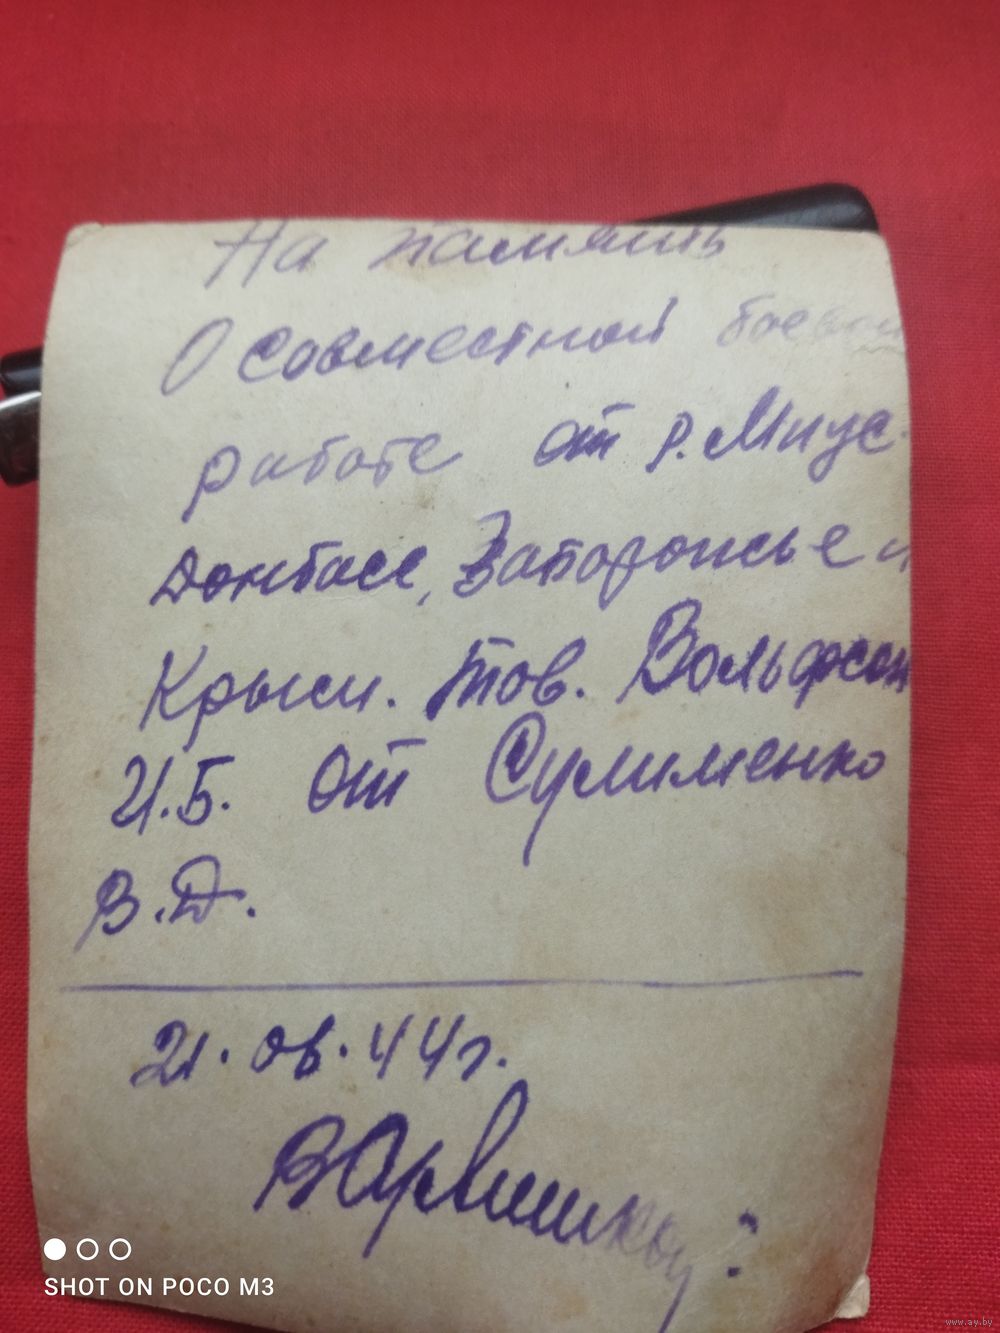 На память
О совместной боевой
работе от р. Миус
Донбасс, Запорожье и
Крым. Тов. Вольфсон
И.Б. от Сулименко
В.Д.
21.08.44г.
SHOT ON POCO M3
www.ay.by